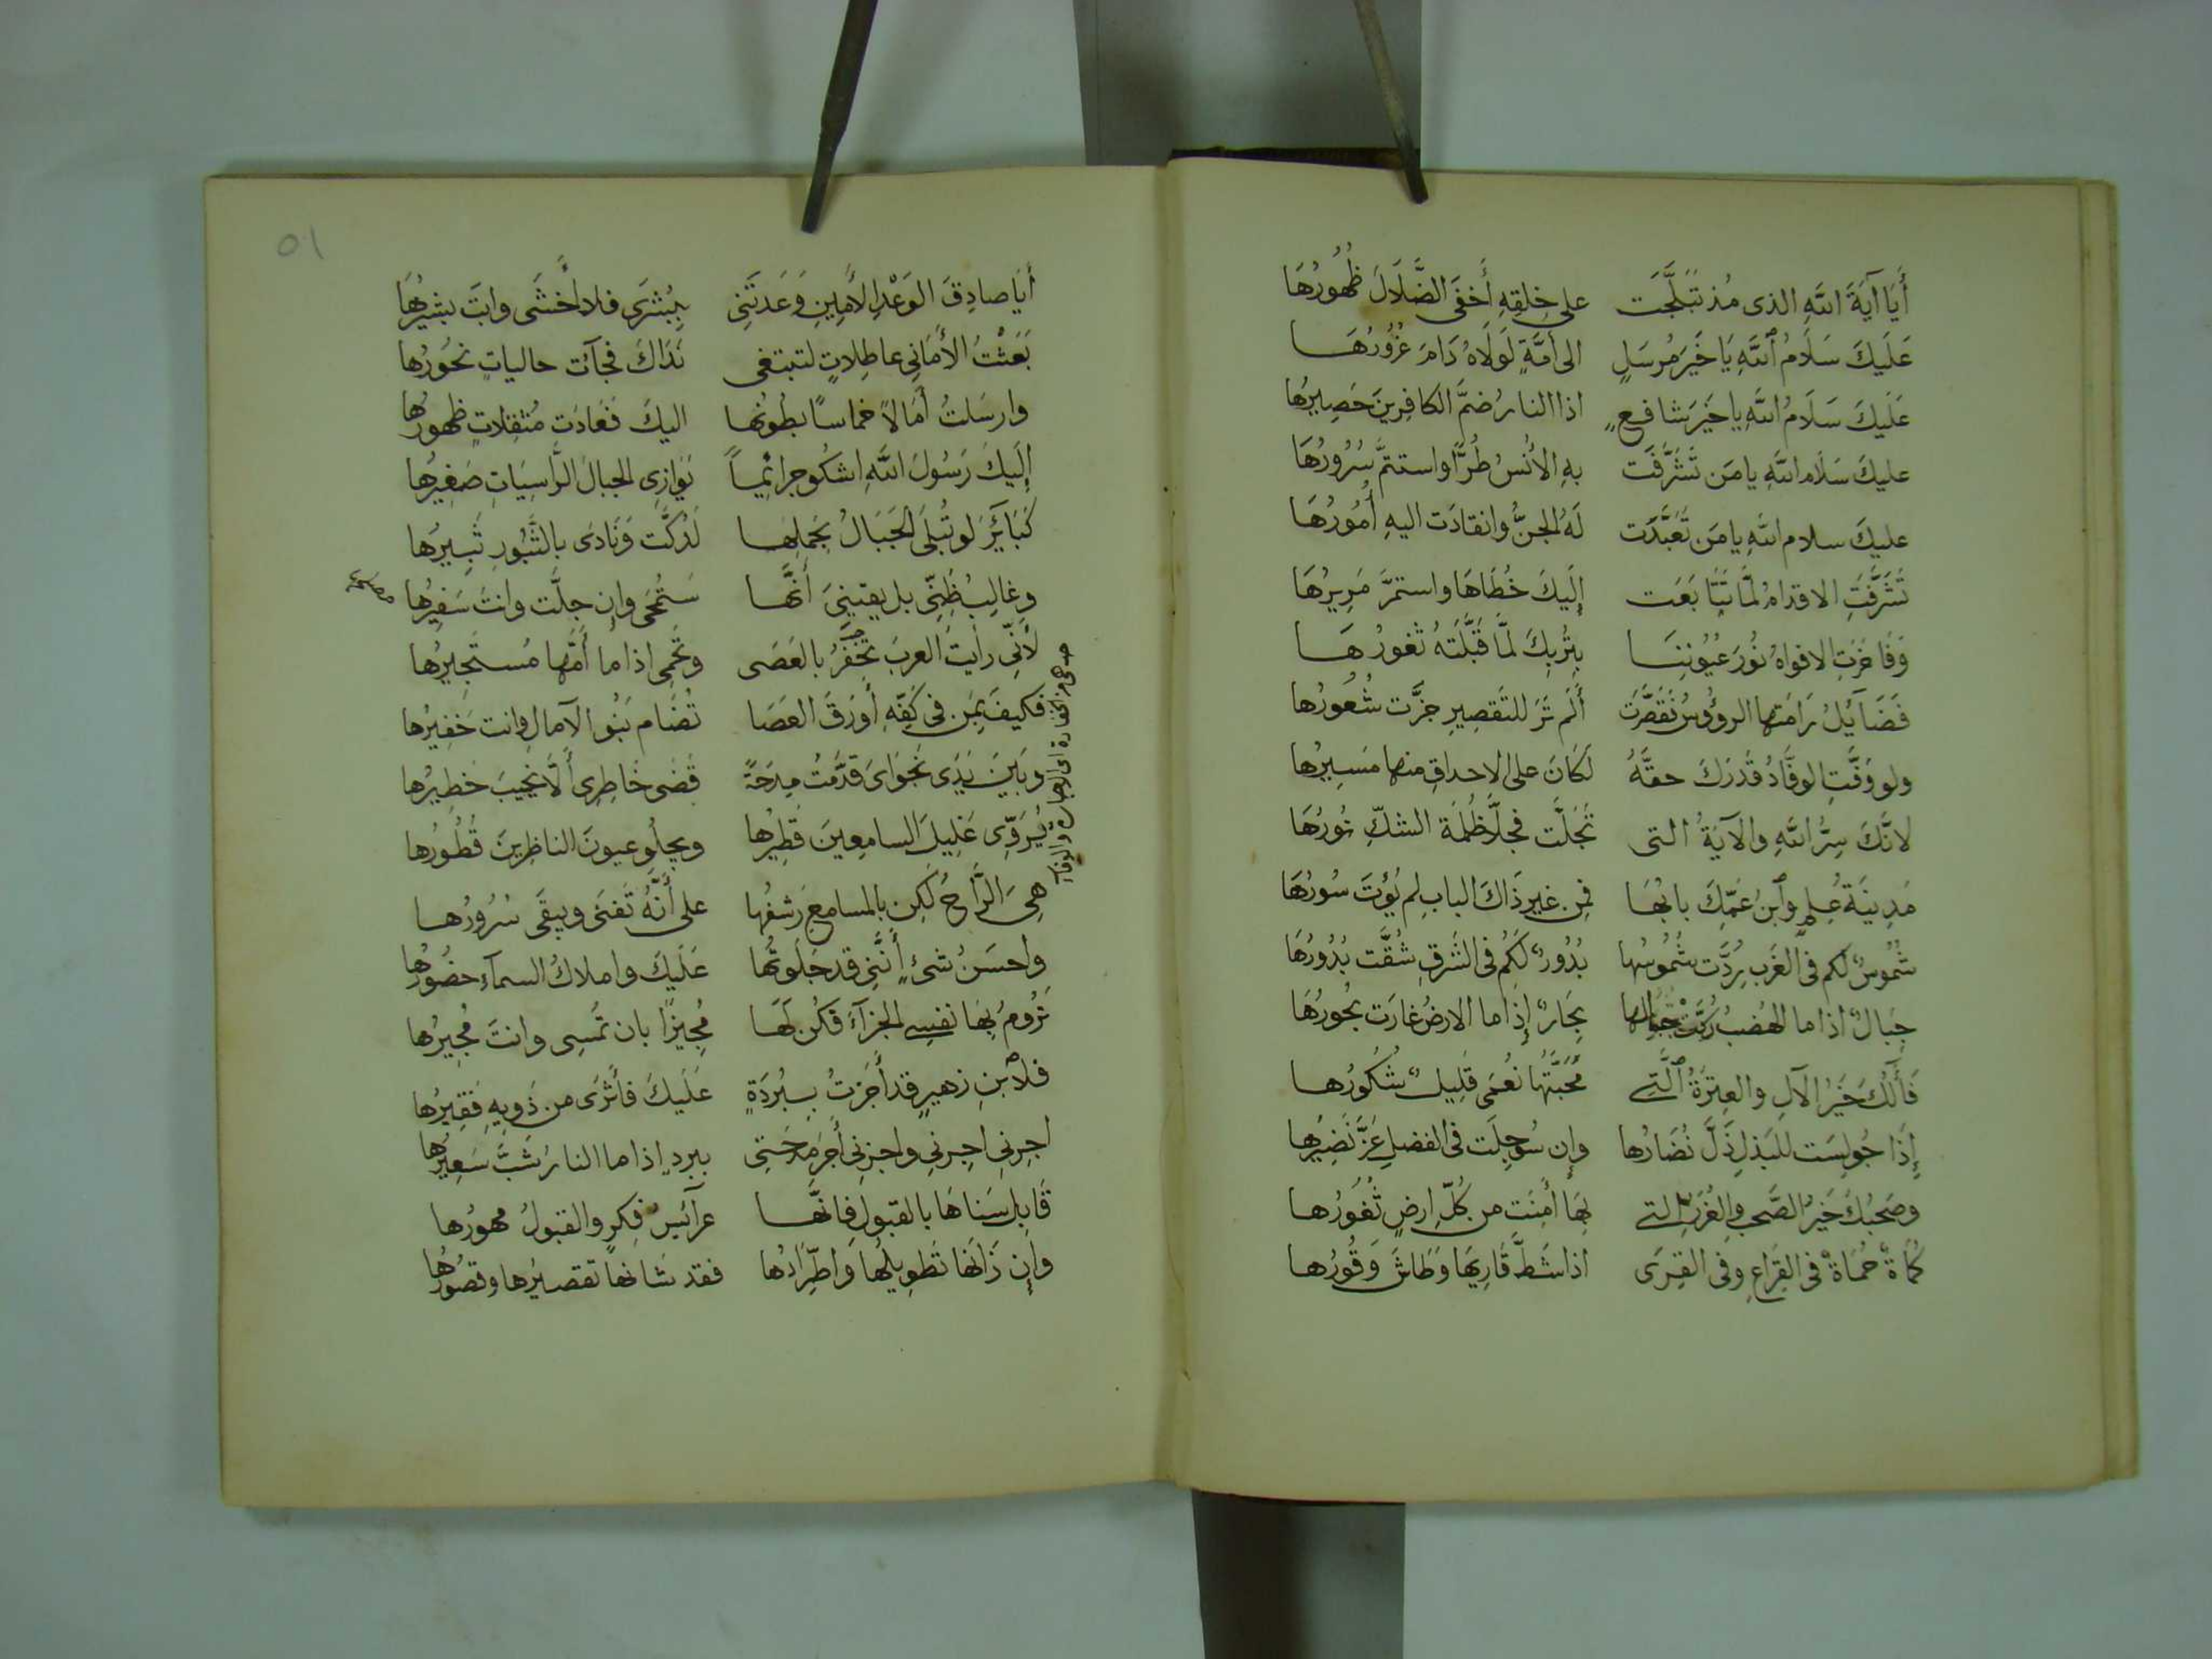 أَيَا آيَةَ اللهِ الذى مُذ تَبَلَّجَت على خلقِهِ أَخفَى الضَّلَالَ ظُهُورُهَا
عَلَيكَ سَلَامُ ٱللهِ يَا خَيرَ مُرسَلٍ الى أُمَّةٍ لَولَاهُ دَامَ غُرُورُهَا
عَلَيكَ سَلَامُ اللهِ يا خَيرَ شافعٍ اذا النارُ ضمَّ الكافِرِينَ حَصِيرُها
عليكَ سَلَام اللهِ يا مَن تَشَرَّفَت بهِ الأُنسُ طُرًّا واستتمَّ سُرُورُهَا
عليكَ سلام اللهِ يا مَن تَعَبَّدَت لَهُ الجنُّ وانقادَت اليهِ أُمُورُهَا
تَشَرَّفَتِ الاقدامُ لمَّا تَتَابَعَت إِلَيكَ خُطَاهَا واستمَرَّ مَرِيرُهَا
وَفَاخَرَتِ الافواهُ نُورَ عُيُونِنَا بِتُربِكَ لَمَّا قَبَّلَتهُ ثغورُهَا
فَضَايُلُ رَامَتها الروُوسُ فَقَصَّرَت أَلَم تَرَ للتَقصِيرِ جزَّت شُعُورُها
ولو وَفَّتِ الوفَّادُ قَدرَكَ حقَّهُ لَكَانَ على الاحداقِ منها مَسِيرُها
لانَّكَ سِرُّ اللهِ والآيَةُ التى تَجَلَّت فجلَّا ظُلمَة الشكِّ نورُهَا
مَدِينَة عُلمٍ وٱبنُ عَمِّكَ بابُهَا فمِن غيرِ ذَاكَ البابِ لم يُؤتَ سُورُهَا
شُمُوسٌ لَكم فى الغَرب رِدَّت شُمُوسُها بُدُورٌ لَكُم فى الشَرقِ شُقَّت بُدُورُهَا
جِبَالٌ اذا ما الهُضبُ دُكَّت جِبالها بِحَارٌ إِذا ما الارضُ غارَت بحُورُهَا
فَآلُكَ خَيرُ الآلِ والعِترَةُ ٱلَّتِي مَحَبَّتُهَا نعُمَى قَلِيلٌ شُكُورُها
إِذَا جُولِسَت للبَذلِ ذَلَّ نُضَارُها وإِن سُوجِلَت فى الفضلِ عَزَّ نَضِيرُها
وصَحبُكَ خَيرُ الصَّحبِ والغُرَرُ التي بِهَا أُمِنَت من كُلّ ارضٍ ثُغُورُها
كُمَاةٌ حُمَاةٌ فى القِرَاعِ وفى القِرَى اذا شَطَّ قَارِيهَا وَطَاشَ وَقُورُها
٥١
أَيَا صادِقَ الوَعْدِ الأَمِينِ وَعَدتَنِى بِبُشرَى فلا أَخشَى وانتَ بشيرُهَا
بَعَثْتُ الأَمَانِى عاطِلاتٍ لتبتغى نَدَاكَ فجَآت حالياتٍ نحُورُها
وارسَلتُ أَمَالاً خماسًا بطُونُها اليكَ فَعَادَت مُثقِلاتٍ ظهورُها
إِلَيكَ رَسُولَ اللهِ اشكُو جرائمًا يُوَازِى الجبالَ الرَّاسِيَاتِ صَغِيرُها
كَبَايَرَ لو تُبلَى الجَبَالُ بحَملِها لَدُكَّت وَنَادَى بالثُّبُورِ ثَبِيرُها
وغالِبُ ظَنِّى بل يقينيَ أَنَّها سَتُمحَى وإِن جلَّت وانتَ سَفِيرُها
لأنِّى رأيتُ العربَ تخفَرُ بالعَصَى وتَحمِى اذا ما أَمَّها مُستَجِيرُها
فكيفَ بمَن فى كَفِّهِ أَورَقَ العَصَا تُضَام بَنُو الآمالِ وانت خَفِيرُها
وبَينَ يَدَى نَجوَاىَ قدَّمتُ مِدحَةً قَضَى خَاطِرِى أَلَّا يَخِيبَ خطِيرُها
يُرَوِّى غَلِيلَ السامعِينَ قَطِيرُها ويجلُو عيونَ الناظِرينَ قُطُورُها
هِىَ الرَّاحُ لكِن بالمسامِعِ رَشفُها على أَنَّهُ تَفنَى ويبقَى سُرُورُها
واحسَنُ شئٍ أَنَّنِى قد جَلَوتُها عَلَيكَ واملاكُ السمآءِ حضُورُها
تَرُومُ بِهَا نفسي الجزَآءَ فكُن لَهَا مُجِيزًا بان تُمسِى وانتَ مُجِيرُها
فلاْبنِ زهيرٍ قد أَجَزتَ بِبُردَةٍ عَلَيكَ فأَثرَى من ذَوِيهِ فَقِيرُها
اجِرنِى اجِزنِى واجزنِى أَجرَ مِدحَتِى ببردٍ إذا ما النارُ شَبَّ سَعِيرُها
قَابِل سَنَاهَا بالقبولِ فإِنَّها عرآئسُ فِكرٍ والقبولُ مهورُها
وَإِن زَانَهَا تَطوِيلُها وَاطِّرَادُها فقد شانها تقصيرُها وقصُورُها